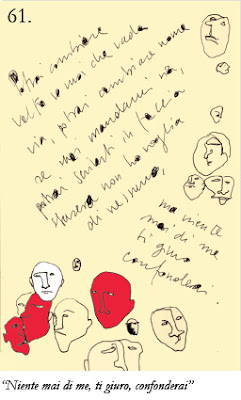 61.
Potrai cambiare
volto se mai che vada
via, potrai cambiare nome
se mai mandarmi via,
potrai
stasera non ho voglia
di nessuno,
ma niente
mai di me
ti giuro
confonderai.
"Niente mai di me, ti giuro, confonderai"